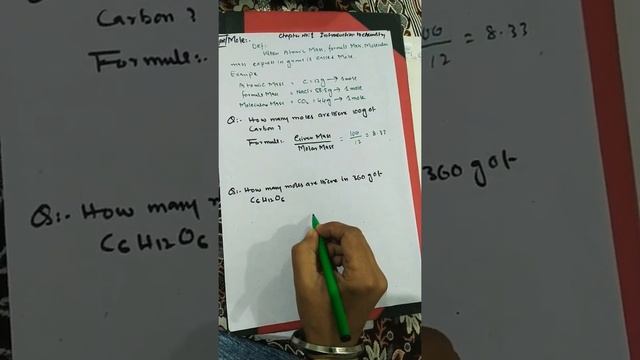 Mole:. Chapter no:1 Introduction to Chemistry
Def:
When Atomic Mass, formula Mass, Molecular
mass express in grams is called Mole.
Example
Atomic Mass = C = 12g → 1 mole
formula Mass = NaCl = 58.5g → 1 mole
Molecular Mass = CO2 = 44g → 1 mole
Q:- How many moles are there 100g of
Carbon?
Formula:. Given Mass / Molar Mass = 100 / 12 = 8.33
Q:- How many moles are there in 360 g of
C6H12O6
Carbon?
Formule:.
Q:- How many
C6H12O6
100 / 12 = 8.33
360g of